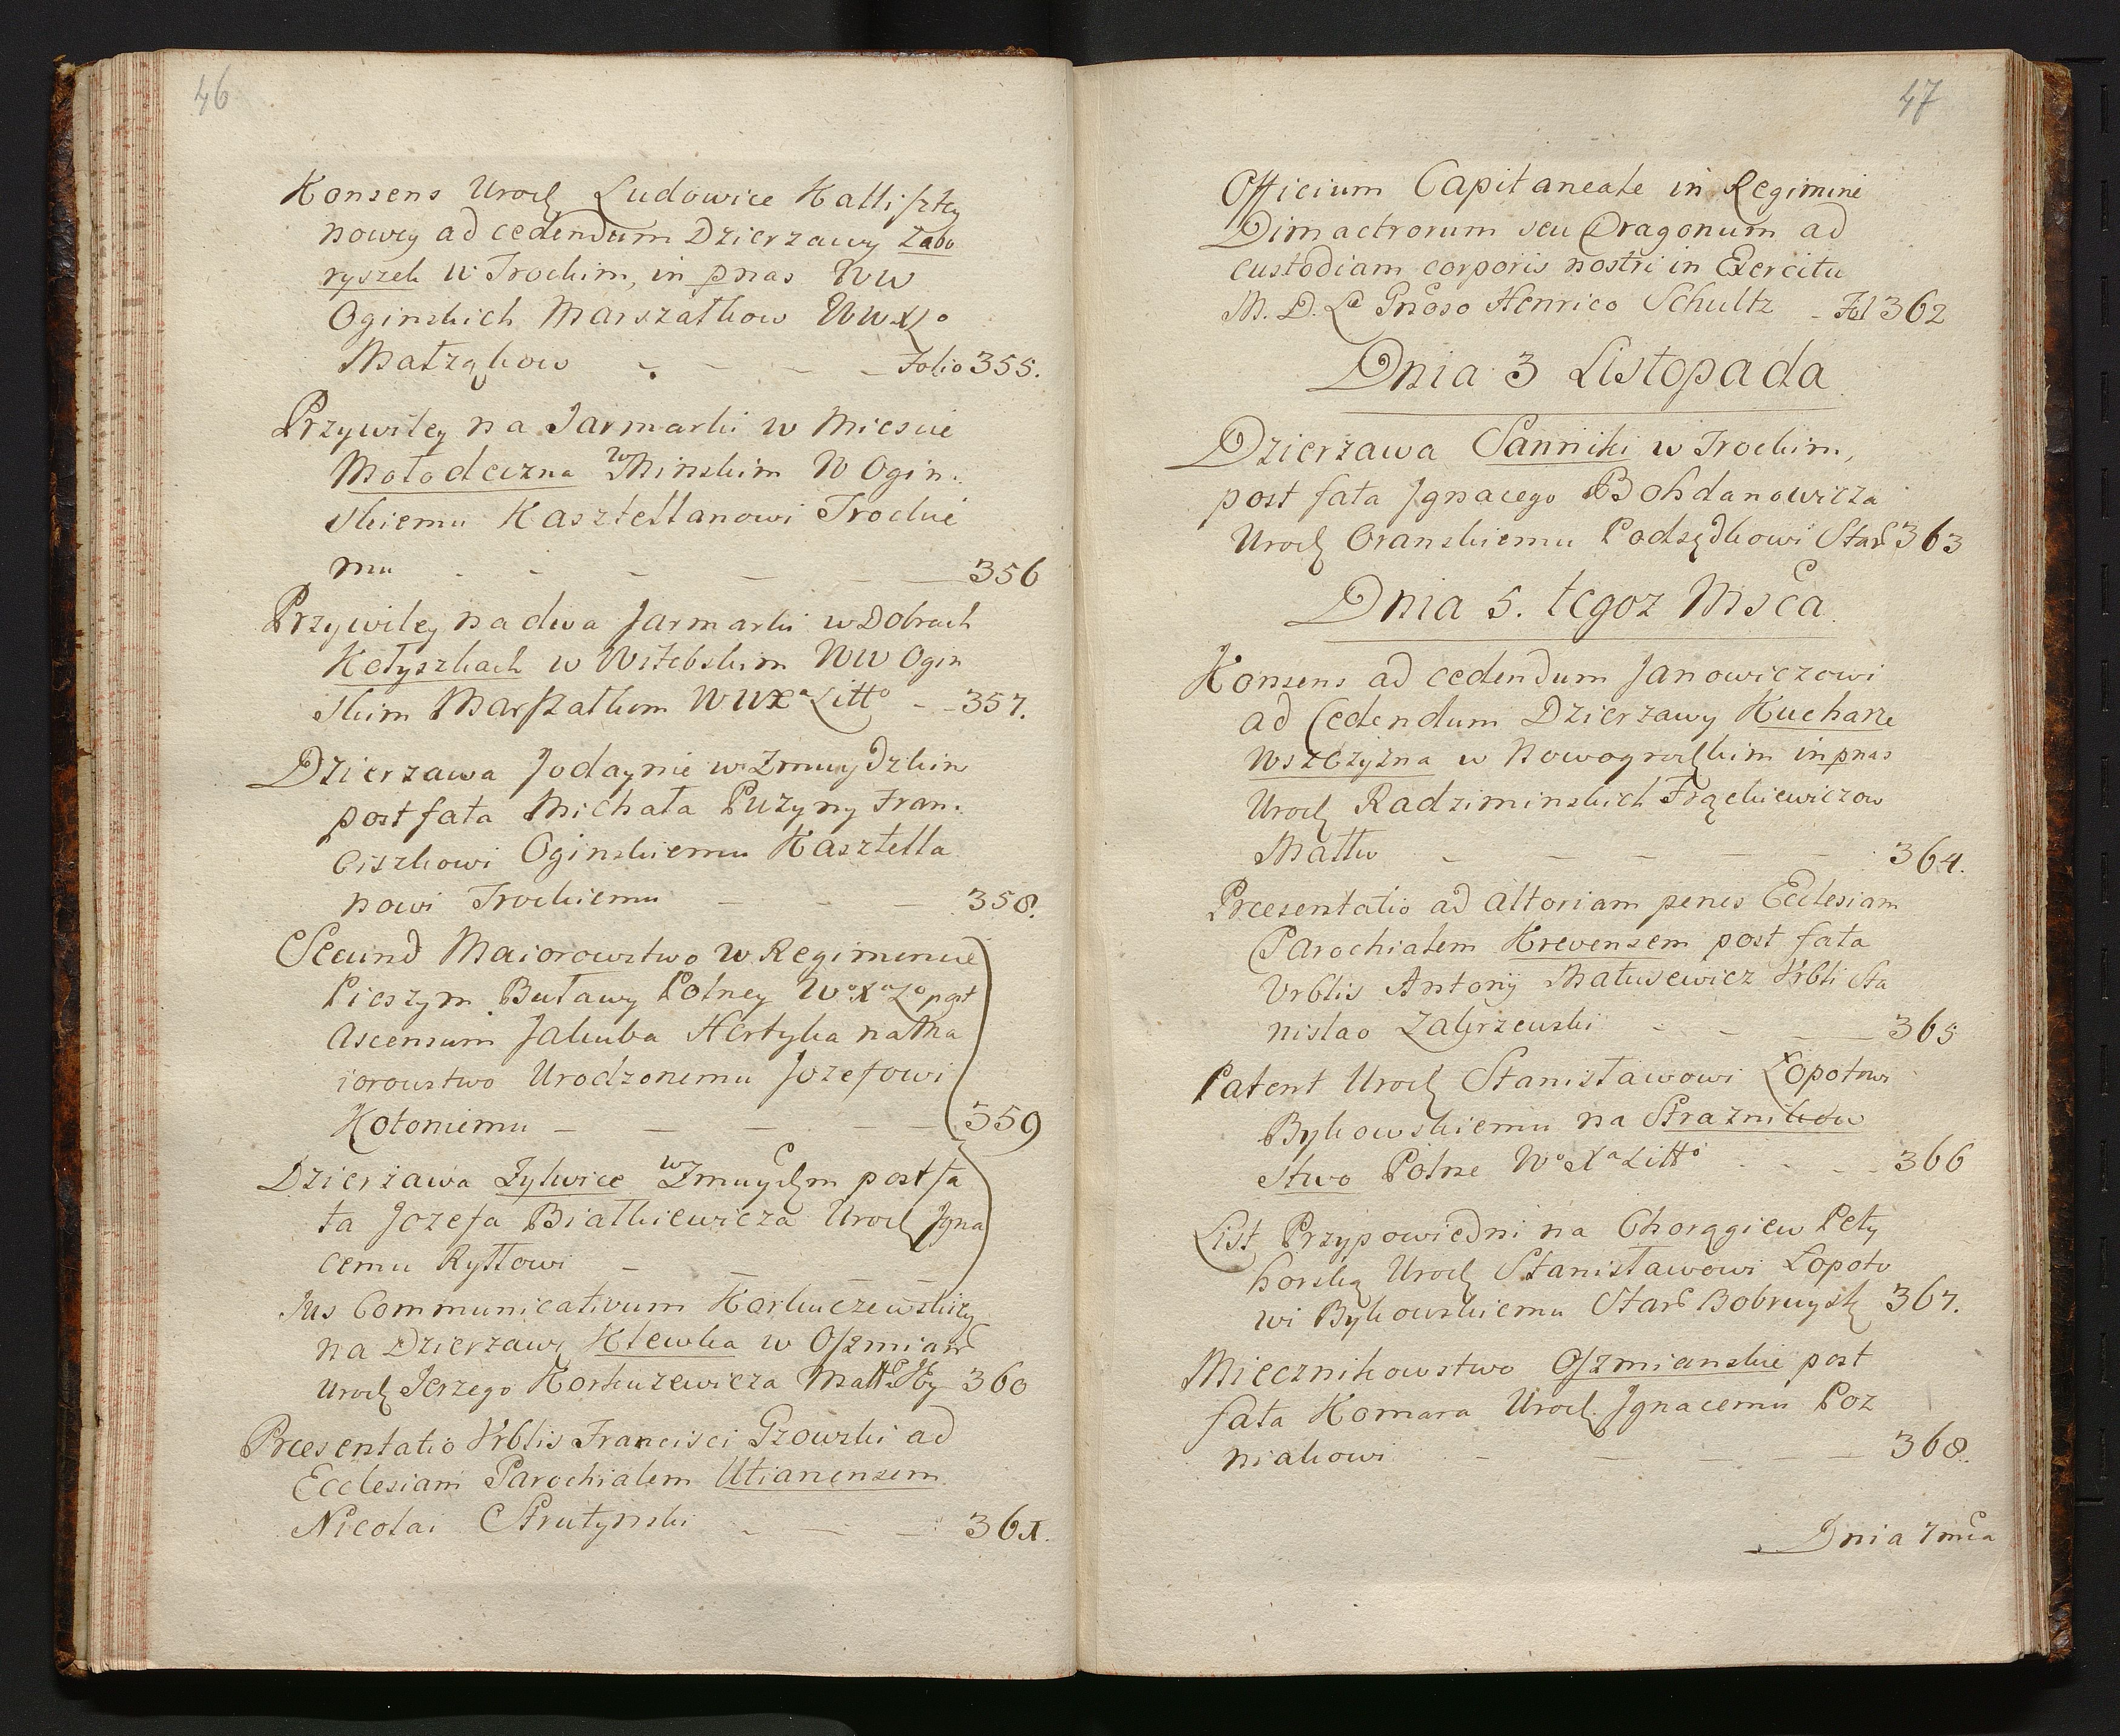 46
Konsens Urodz Ludowice Kalliszty
nowey ad cedendum Dzierzawy Zabo
ryszek w Trockim, in pnas WW
Oginskich Marszałkow WWXLo
Małząkow - - - - Folio 355.
Przywiley na Jarmarki w Miescie
Mołodeczna w Minskim W Ogin:
skiemu Kasztellanowi Trockie
mu - - - - - 356
Przywiley na dwa Jarmarki w Dobrach
Kołyszkach w Witebskim WW Ogin
skim Marszałkom WWXa Litto - - 357.
Dzierzawa Jodaynie w Zmuydzkim
post fata Michała Puzyny Fran:
ciszkowi Oginskiemu Kasztella
nowi Trockiemu - - - 358.
Secund Maiorowstwo w Regimencie
Pieszym Buławy Polney Wo Xa Lo post
Ascensum Jakuba Hertyka na Ma
iorowstwo Urodzonemu Jozefowi
Kotoniemu - - - - - 359
Dzierzawa Zylwice w Zmuydzm post fa
ta Jozefa Białkiewicza Urodz Igna
cemu Ryłłowi - - - -
Jus Communicativum Korkuczewskiey
na Dzierzawę Klewka w Oszmian
Urodz Jerzego Korkuzewicza 360
Præsentatio Vrblis Francisci Gzowski ad
Ecclesiam Parochialem Utianensem
Nicolai Strutynski - - - 361.
47
Officium Capitaneale in Regimine
Dimactrorum seu Dragonum ad
custodiam corporis nostri in Exercitu
M. D. L. Gnoso Henrico Schultz - Fol 362
Dnia 3 Listopada
Dzierzawa Sanniki w Trockim,
post fata Ignacego Bohdanowicza
Urodz Oranskiemu Podsędkowi Star 363
Dnia 5. tegoz Msca
Konsens ad cedendum Janowiczowi
ad Cedendum Dzierzawy Kucharze
wszczyzna w Nowogrodzkim in pnas
Urodz Radziminskich Frąckiewiczow
Małłw - - - - - 364.
Præsentatio ad altoriam penes Ecclesiam
Parochialem Krevensem post fata
Vrblis Antonij Matusewicz Vrbli Sta
nislao Zakrzewski - - - 365
Patent Urodz Stanisławowi Łopotowi
Bykowskiemu na Straznikow
stwo Polne Wo Xa Litto - - - - 366
List Przypowiedni na Chorągiew Pety
horską Urodz Stanisławowi Łopoto
wi Bykowskiemu Star Bobruysk 367.
Miecznikowstwo Oszmianskie post
fata Komara Urodz Ignacemu Poz
niakowi - - - - - 368.
Dnia 7 mca